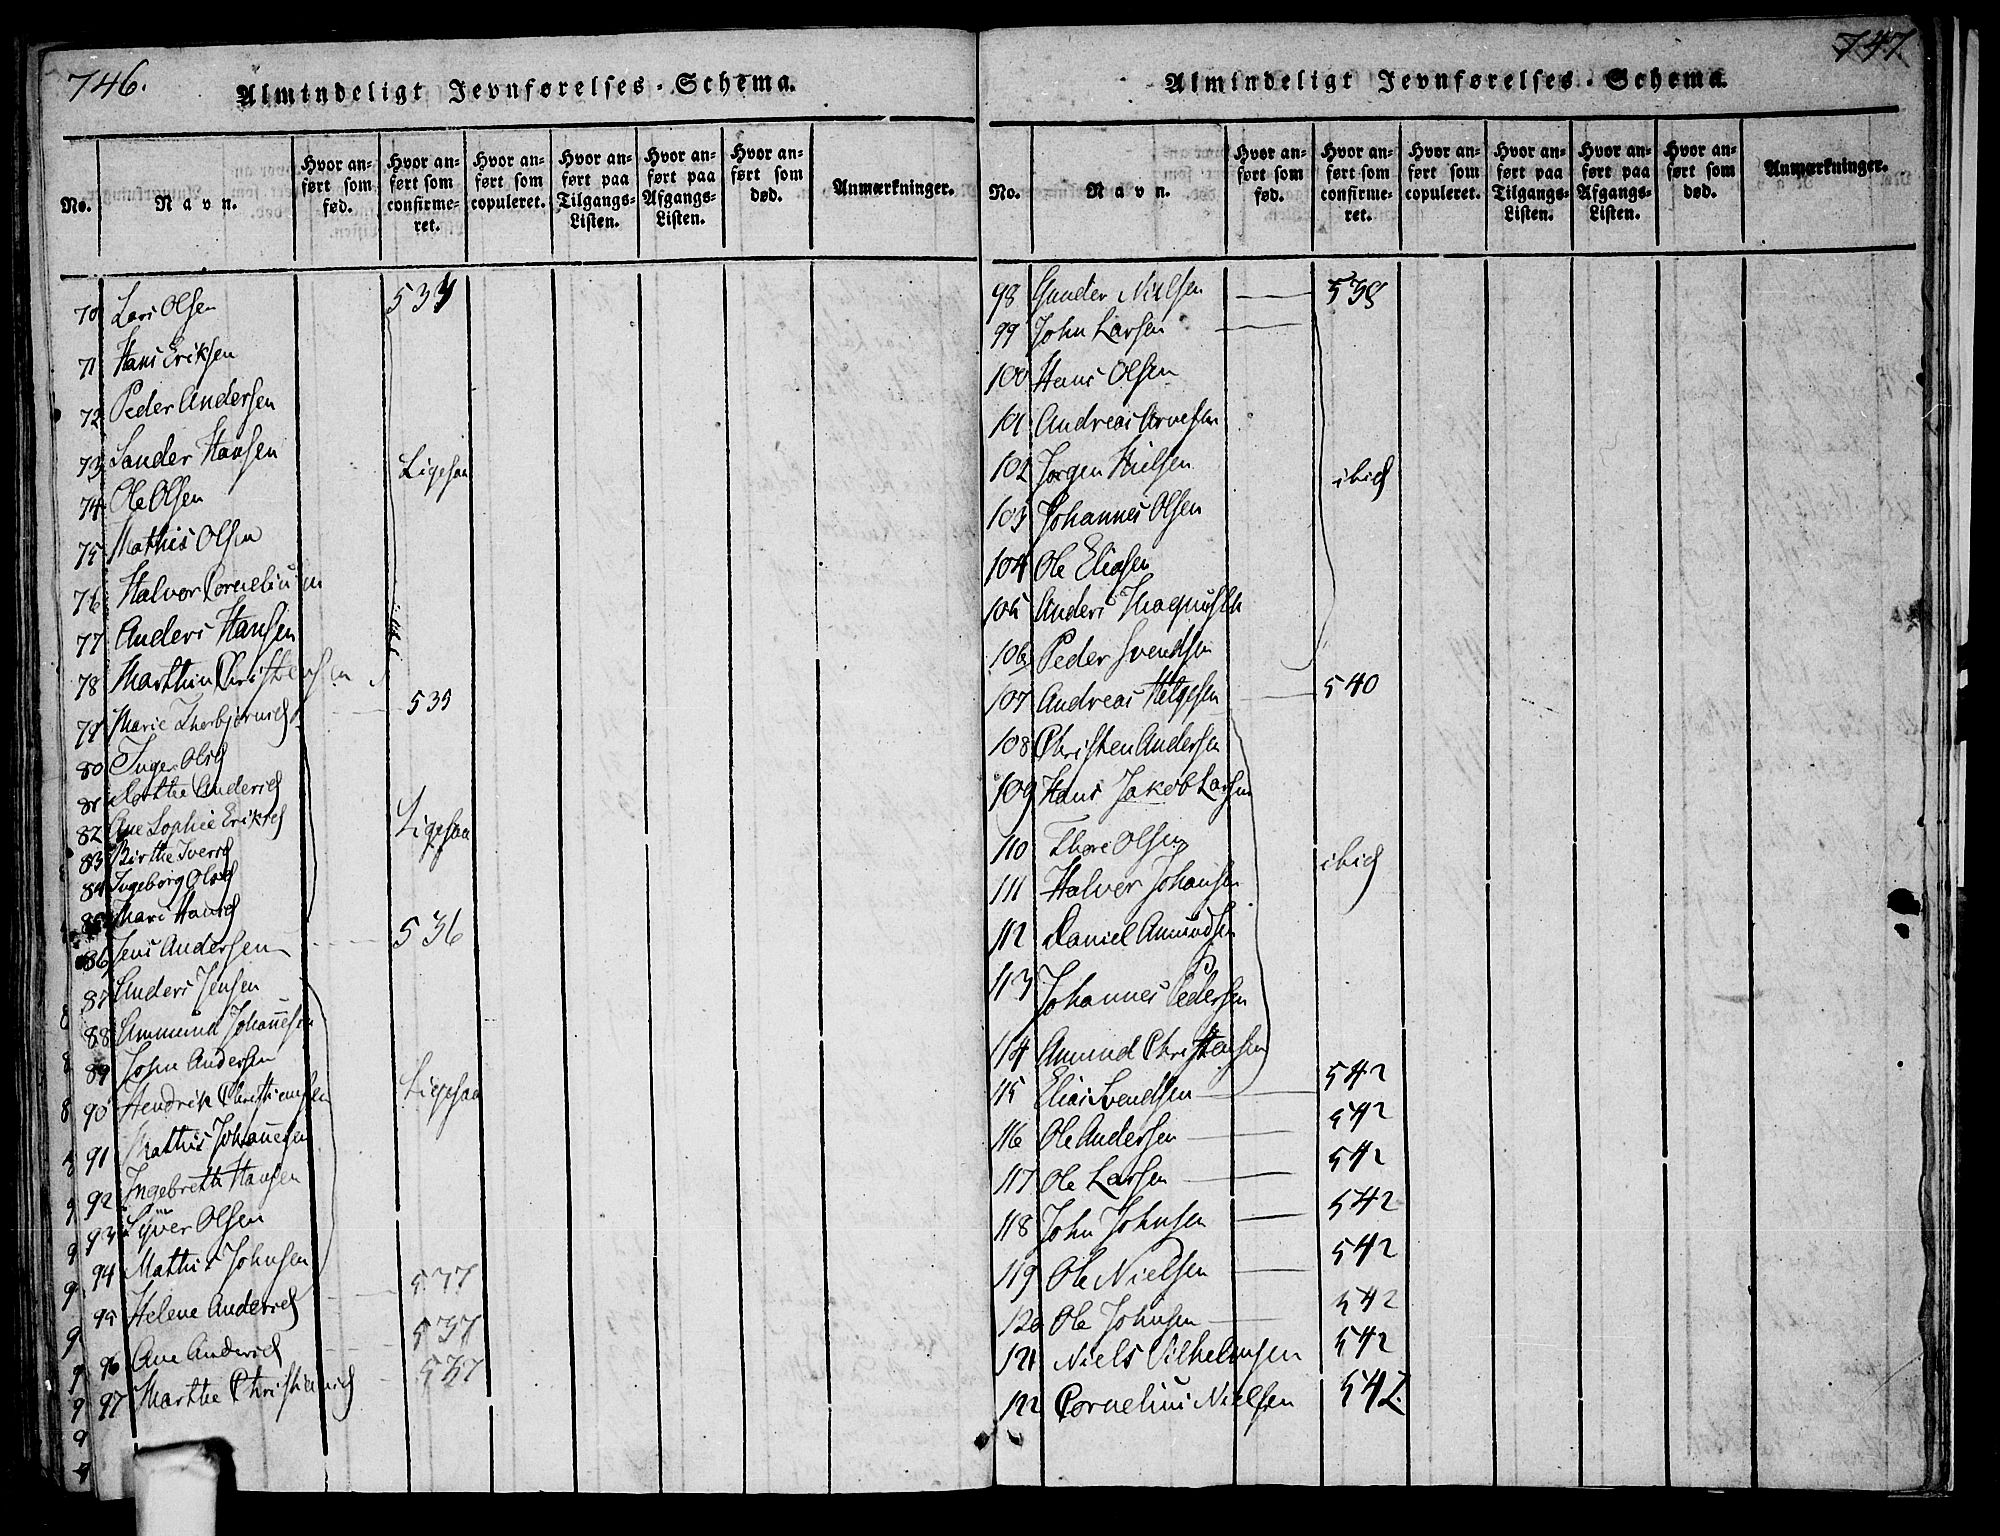 746.
Almindeligt Jevnførelses-Schema.
No. Navn. Hvor anført som fød. Hvor anført som confirmeret. Hvor anført som copuleret. Hvor anført paa Tilgangs-Listen. Hvor anført paa Afgangs-Listen. Hvor anført som død. Anmærkninger.
70 Lars Olsen 534
71 Hans Eriksen
72 Peder Andersen
73 Sander Hansen Ligesaa
74 Ole Olsen
75 Mathis Olsen
76 Halvor Corneliusen
77 Anders Hansen
78 Marthin Christensen
79 Marie Thorbjørnsd 535
80 Inger Olsd
81 Dorthe Andersd
82 Ane Sophie Eriksd Ligesaa
83 Birthe Iversd
84 Ingeborg Olsd
85 Mari Hansd
86 Jens Andersen 536
87 Anders Jensen
88 Ammund Johannesen
89 John Andersen
90 Hendrik Christiansen Ligesaa
91 Mathis Johannesen
92 Ingebreth Hansen
93 Syver Olsen
94 Mathis Johnsen
95 Helene Andersd 537
96 Ane Andersd 537
97 Marthe Christiansd 537
747.
Almindeligt Jevnførelses-Schema.
No. Navn. Hvor anført som fød. Hvor anført som confirmeret. Hvor anført som copuleret. Hvor anført paa Tilgangs-Listen. Hvor anført paa Afgangs-Listen. Hvor anført som død. Anmærkninger.
98 Gunder Nielsen 538
99 John Larsen
100 Hans Olsen
101 Andreas Arnesen
102 Jørgen Nielsen ibid
103 Johannes Olsen
104 Ole Eliasen
105 Anders Magnusen
106 Peder Svendsen
107 Andreas Helgesen 540
108 Christen Andersen
109 Hans Jakob Larsen
110 Thore Olsen ibid
111 Halvor Johansen
112 Daniel Amundsen
113 Johannes Pedersen
114 Amund Christensen
115 Elias Svendsen 542
116 Ole Andersen 542
117 Ole Larsen 542
118 John Johnsen 542
119 Ole Nielsen 542
120 Ole Johnsen 542
121 Niels Vilhelmsen 542
122 Cornelius Nielsen 542.